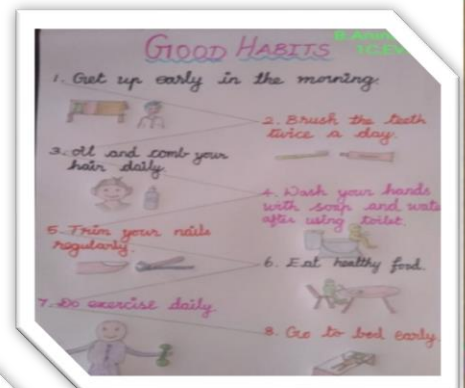 GOOD HABITS
1. Get up early in the morning.
2. Brush the teeth
twice a day.
3. Oil and comb your
hair daily.
4. Wash your hands
with soap and wate
after using toilet.
5. Trim your nails
regularly.
6. Eat healthy food.
7. Do exercise daily.
8. Go to bed early.